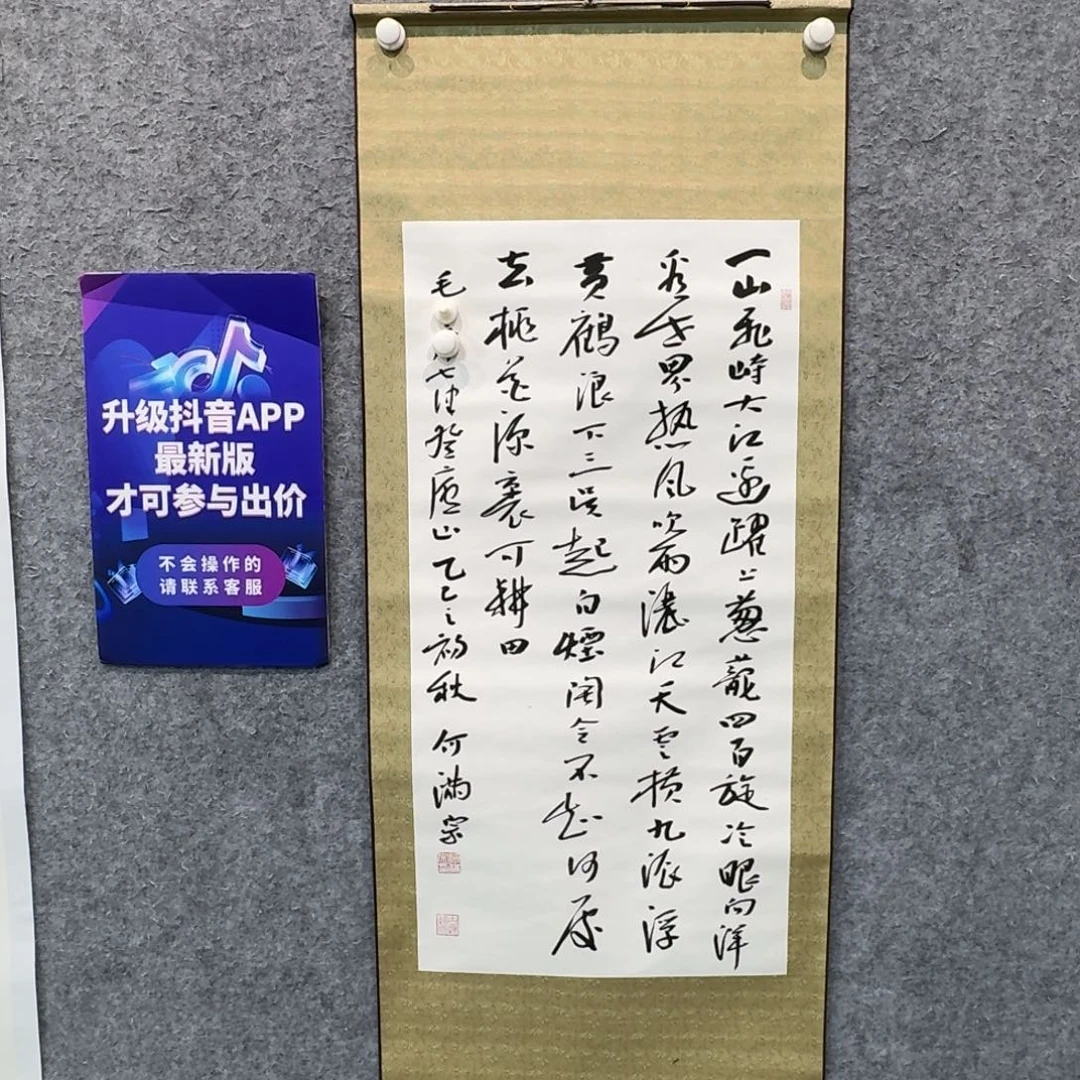 升级抖音APP
最新版
才可参与出价
不会操作的
请联系客服
一山飛峙大江邊躍上蔥蘢四百旋冷眼向洋
看世界热風吹雨灑江天雲横九派浮
黄鶴浪下三吴起白煙陶令不知何處
去桃花源裏可耕田
毛 七律登廬山乙巳之初秋何满宗